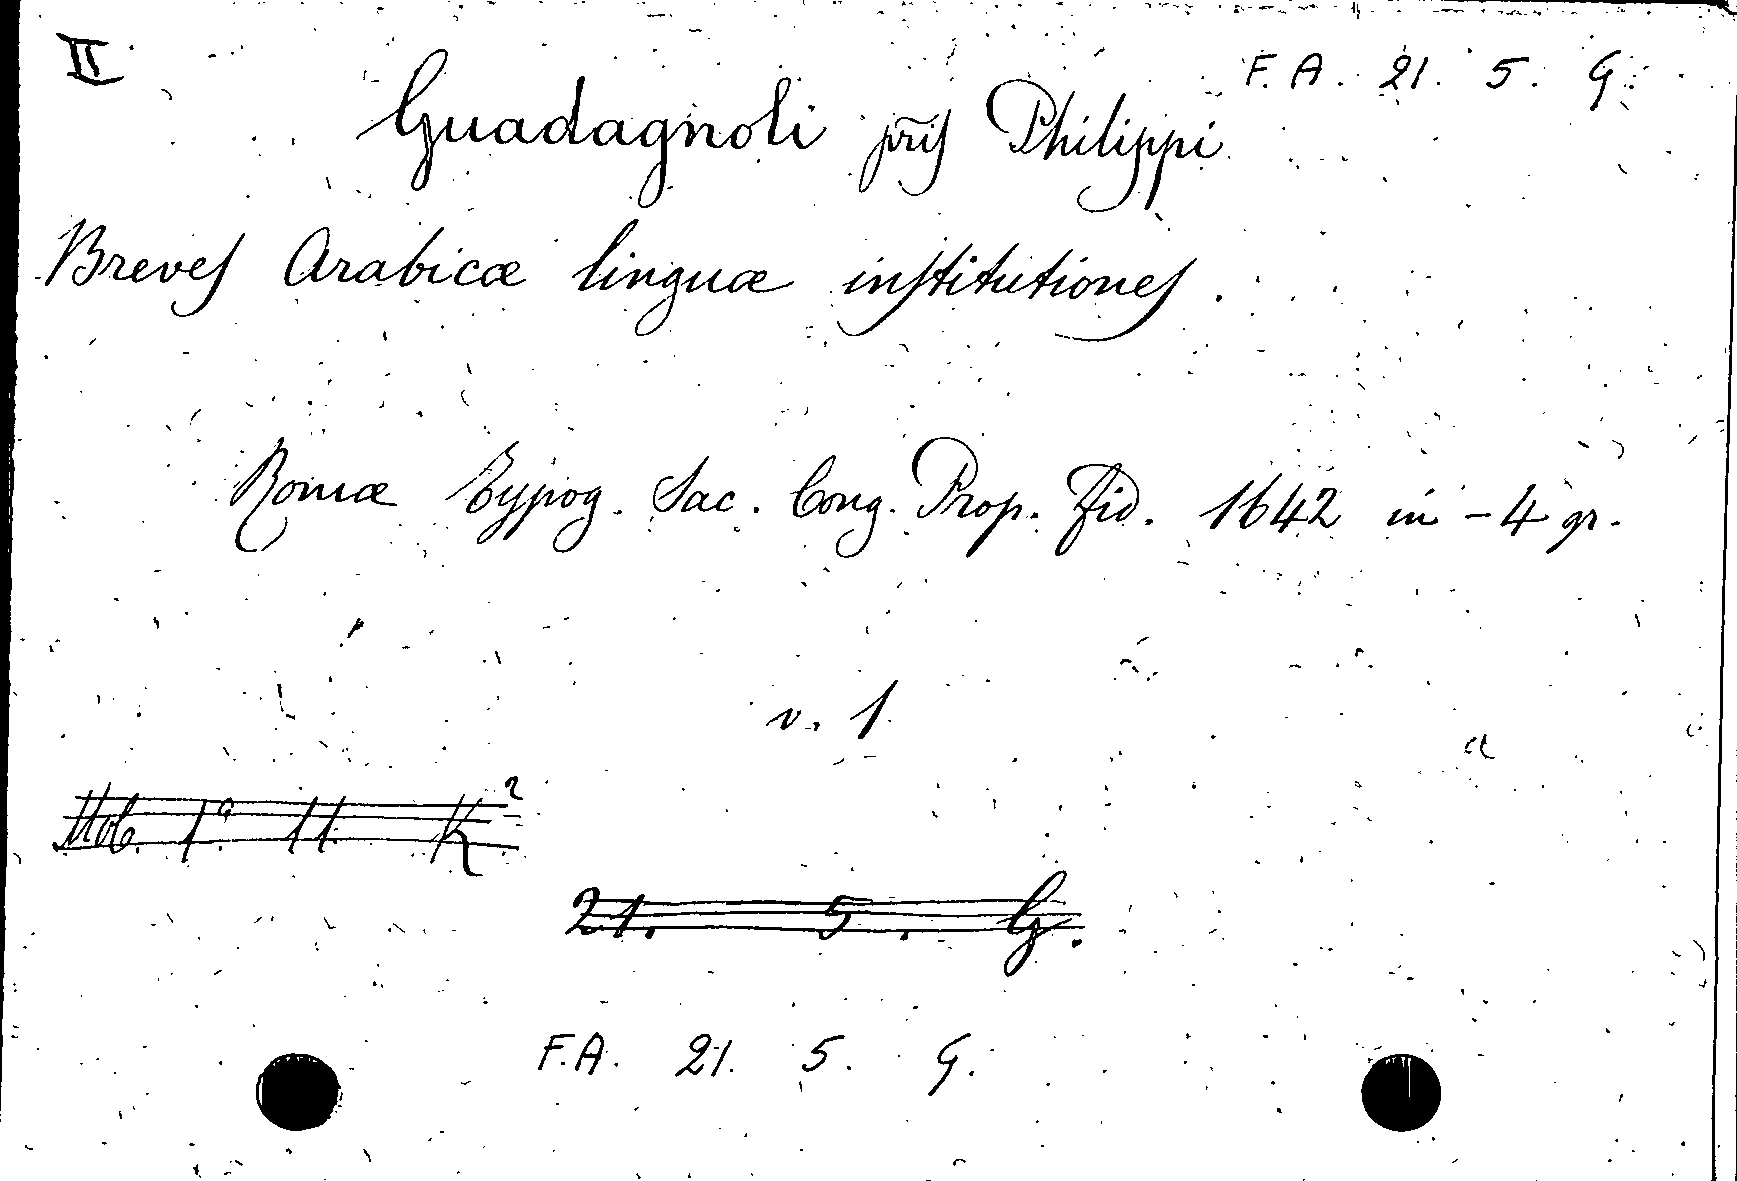 II F. A. 21. 5. G.
Guadagnoli pris Philippi
Breves Arabicæ linguæ institutiones.
Romæ Typog. Sac. Cong. Prop. Fid. 1642 in-4 gr.
v. 1
Mob. 1ª 11 K²
21. 5. G.
F.A. 21. 5. G.